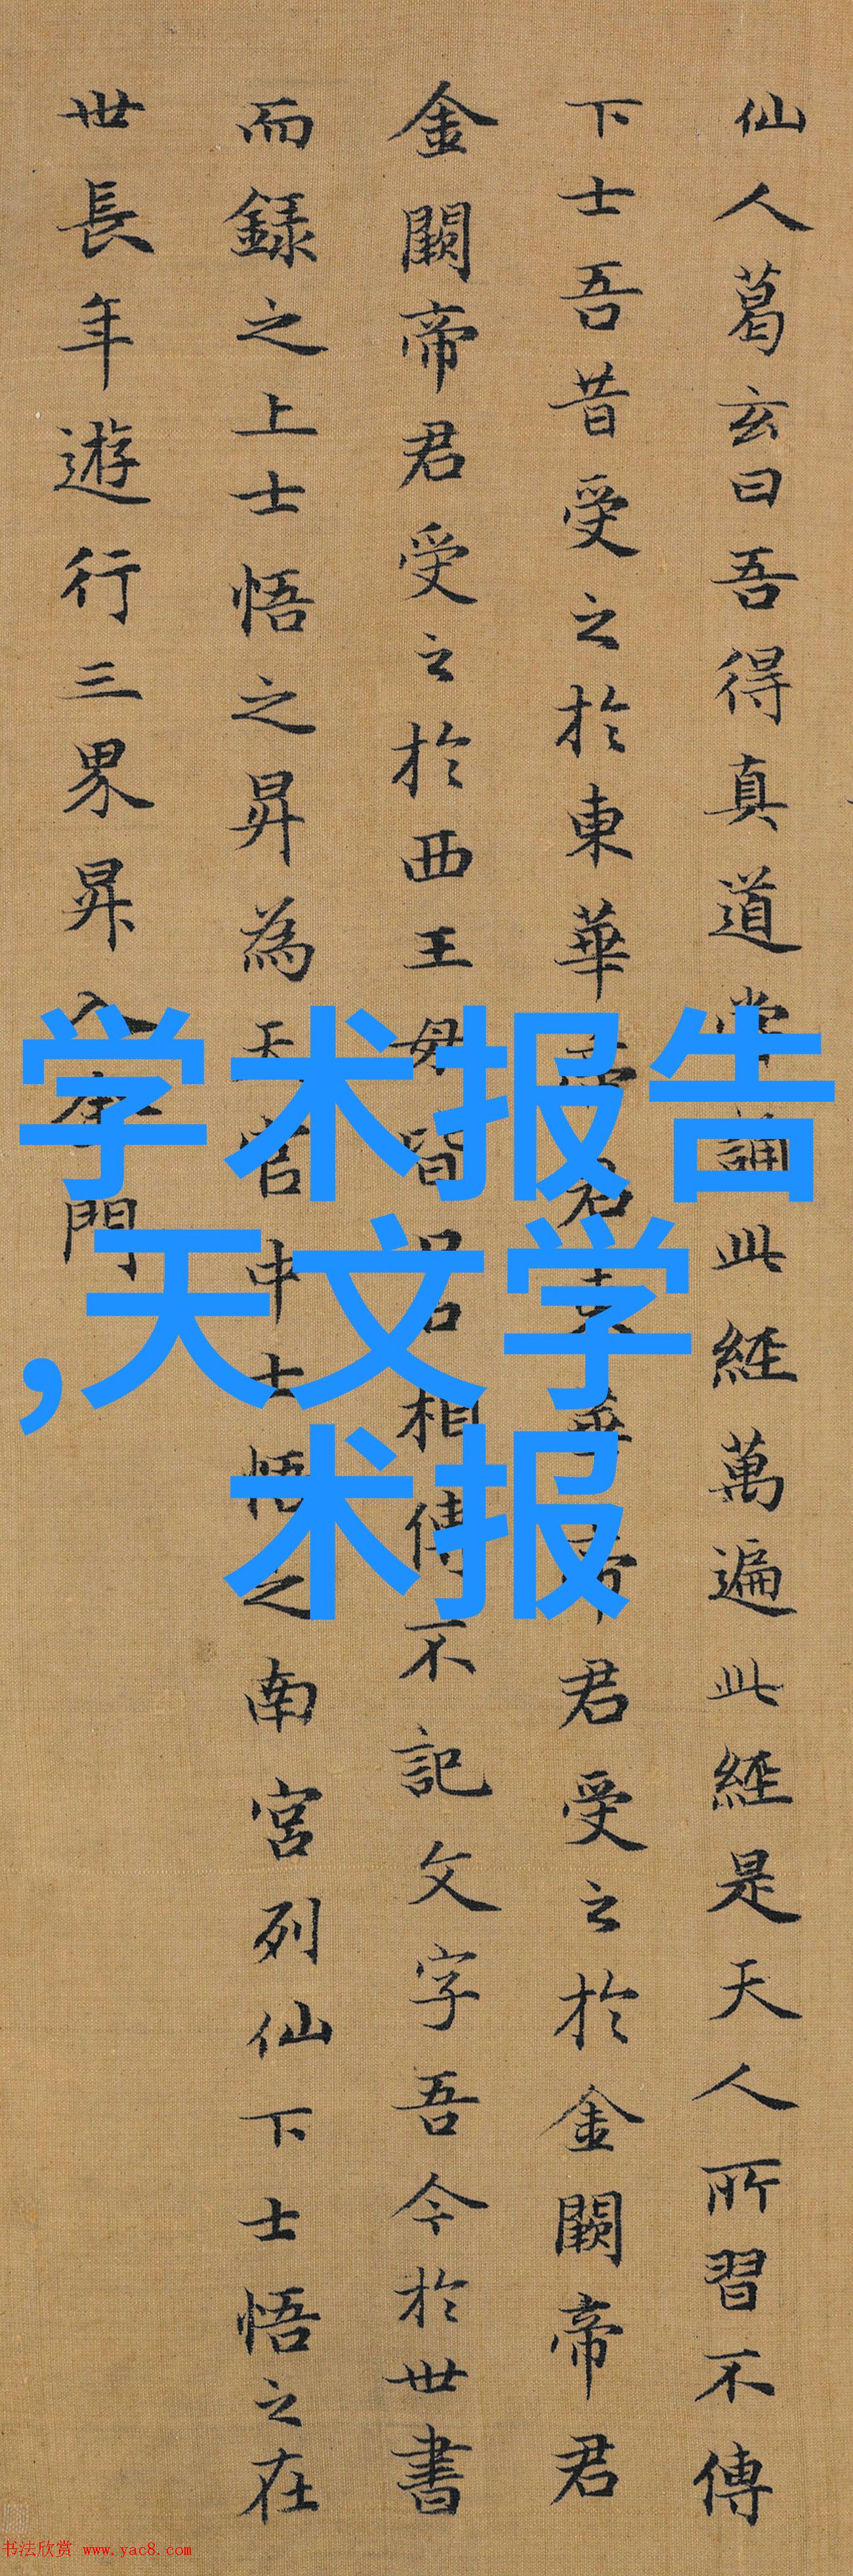 仙人葛玄曰吾得真道常誦此經萬遍此經是天人所習不傳
下士吾昔受之於東華帝君東華帝君受之於金闕帝君
金闕帝君受之於西王母皆口口相傳不記文字吾今於世書
而録之上士悟之昇為天官中士悟之南宮列仙下士悟之在
世長年遊行三界昇入金門
学术报告
,天文学
术报
书法欣赏 www.yac8.com